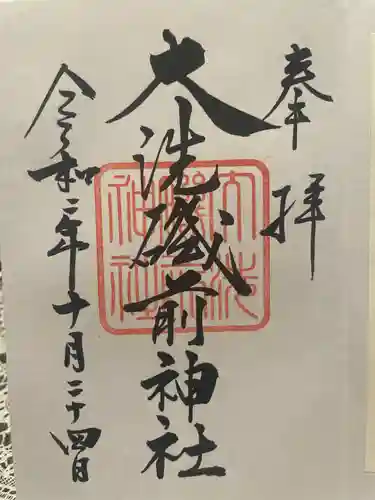 奉拝
大洗磯前神社
令和二年十月二十四日
大洗
磯前
神社